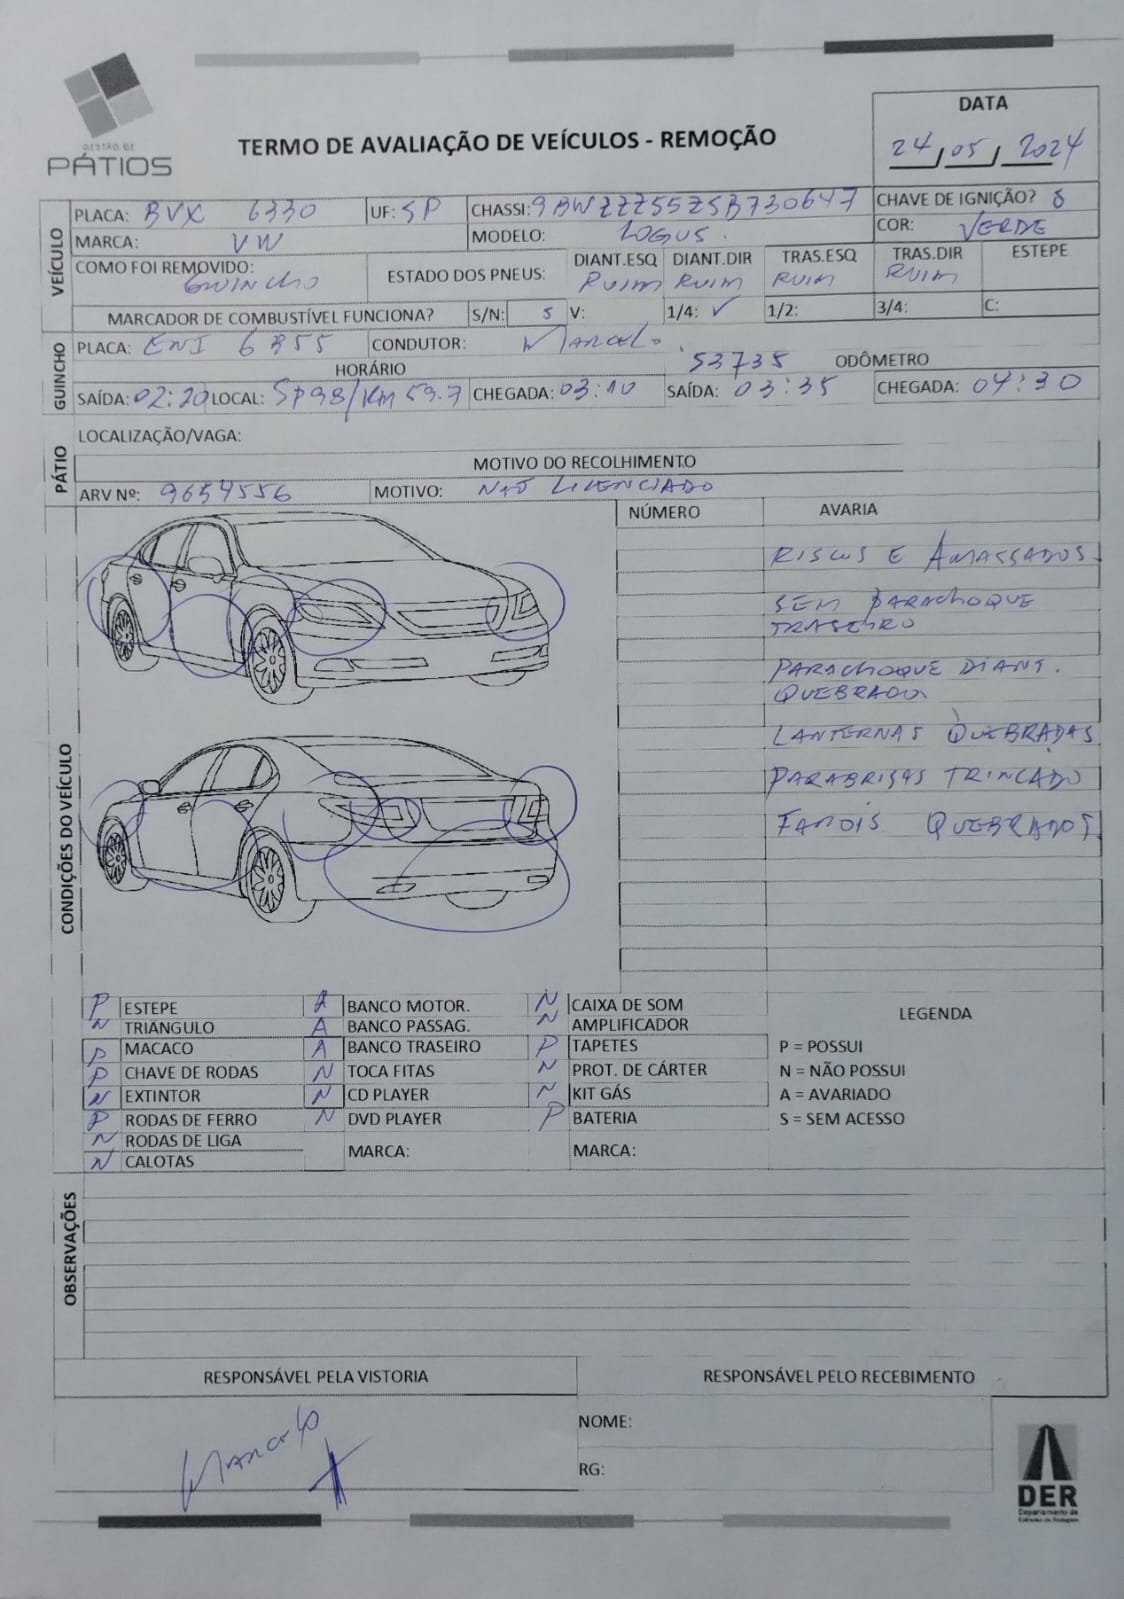 GESTÃO DE
PÁTIOS
TERMO DE AVALIAÇÃO DE VEÍCULOS - REMOÇÃO
DATA
24/05/2024
VEÍCULO
PLACA: BVX 6330 UF: SP CHASSI: 9BWZZZ55ZSB730647 CHAVE DE IGNIÇÃO? S
MARCA: VW MODELO: LOGUS. COR: VERDE
COMO FOI REMOVIDO: GUINCHO
ESTADO DOS PNEUS: DIANT.ESQ DIANT.DIR TRAS.ESQ TRAS.DIR ESTEPE
RUIM RUIM RUIM RUIM
MARCADOR DE COMBUSTÍVEL FUNCIONA? S/N: S V: 1/4: ✓ 1/2: 3/4: C:
GUINCHO
PLACA: ENI 6355 CONDUTOR: MARCELO 53735 ODÔMETRO
HORÁRIO
SAÍDA: 02:20 LOCAL: SP98/KM 59.7 CHEGADA: 03:10 SAÍDA: 03:35 CHEGADA: 04:30
PÁTIO
LOCALIZAÇÃO/VAGA:
MOTIVO DO RECOLHIMENTO
ARV Nº: 9654556 MOTIVO: NÃO LICENCIADO
CONDIÇÕES DO VEÍCULO
NÚMERO AVARIA
RISCOS E AMASSADOS
SEM PARACHOQUE
TRASEIRO
PARACHOQUE DIANT.
QUEBRADO
LANTERNAS QUEBRADAS
PARABRISAS TRINCADO
FAROIS QUEBRADOS
P ESTEPE A BANCO MOTOR. N CAIXA DE SOM
N TRIÂNGULO A BANCO PASSAG. N AMPLIFICADOR
P MACACO A BANCO TRASEIRO P TAPETES
P CHAVE DE RODAS N TOCA FITAS N PROT. DE CÁRTER
N EXTINTOR N CD PLAYER N KIT GÁS
P RODAS DE FERRO N DVD PLAYER P BATERIA
N RODAS DE LIGA MARCA: MARCA:
N CALOTAS
LEGENDA
P = POSSUI
N = NÃO POSSUI
A = AVARIADO
S = SEM ACESSO
OBSERVAÇÕES
RESPONSÁVEL PELA VISTORIA RESPONSÁVEL PELO RECEBIMENTO
MARCELO
NOME:
RG:
DER